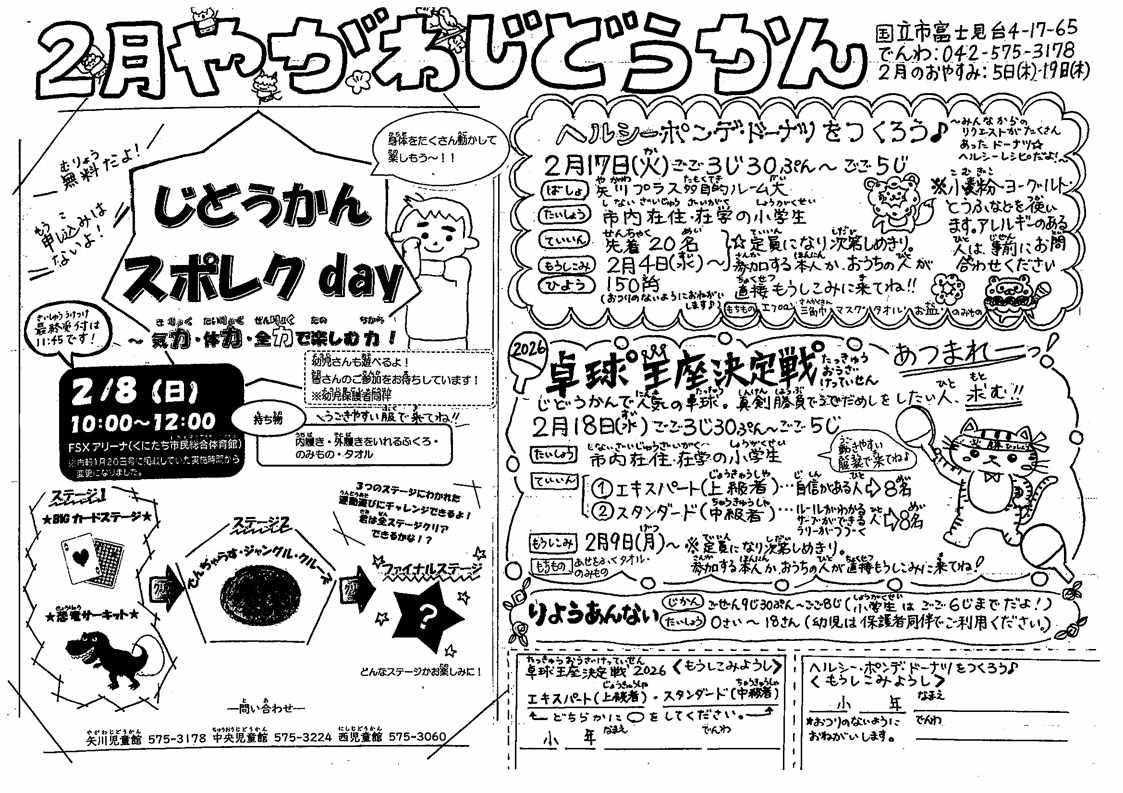 2月やがわじどうかん
国立市富士見台4-17-65
でんわ:042-575-3178
2月のおやすみ:5日(木)・19日(木)
むりょう
無料だよ!
もうしこ
申し込みは
ないよ!
身体をたくさん動かして
楽しもう~!!
じどうかん
スポレク day
~ 気力・体力・全力で楽しむ力!
さいしゅううけつけ
最終受付は
11:45です!
2/8(日)
10:00~12:00
FSXアリーナ(くにたち市民総合体育館)
変更になりました。
幼児さんも遊べるよ!
皆さんのご参加をお待ちしています!
※幼児保護者同伴
持ち物
うごきやすい服で来てね!!
内履き・外履きをいれるふくろ・
のみもの・タオル
ステージ1
★BIGカードステージ★
★恐竜サーキット★
ステージ2
でんぢゃらす・ジャングル・クルーズ
3つのステージにわかれた
運動遊びにチャレンジできるよ!
君は全ステージクリア
できるかな!?
ファイナルステージ
?
どんなステージかお楽しみに!
―問い合わせ―
矢川児童館 575-3178 中央児童館 575-3224 西児童館 575-3060
ヘルシー・ポンデ・ドーナツをつくろう♪
~みんなからの
リクエストがたくさん
あったドーナツ☆
ヘルシーレシピだよ!~
2月17日(火)ごご3じ30ぷん~ごご5じ
ばしょ 矢川プラス多目的ルーム大
たいしょう 市内在住・在学の小学生
ていいん 先着20名
☆定員になり次第しめきり。
もうしこみ 2月4日(水)~
参加する本人か、おうちの人が
直接もうしこみに来てね!!
ひよう 150円
(おつりのないようにおねがいします♪)
もちもの エプロン 三角巾 マスク タオル お皿 のみもの
※小麦粉・ヨーグルト・
とうふなどを使い
ます。アレルギーのある
人は、事前にお問
合わせください
2026
卓球王座決定戦
たっきゅう
おうざ
けっていせん
あつまれーっ!
じどうかんで人気の卓球。真剣勝負でうでだめしをしたい人、求む!!
2月18日(水)ごご3じ30ぷん~ごご5じ
たいしょう 市内在住・在学の小学生
動きやすい
服装で来てね!
ていいん
①エキスパート(上級者)…自信がある人⇨8名
②スタンダード(中級者)…ルールがわかる
サーブができる人⇨8名
ラリーがつづく
もうしこみ 2月9日(月)~ ※定員になり次第しめきり。
もちもの あせをふくタオル・
のみもの
参加する本人か、おうちの人が直接もうしこみに来てね!
りようあんない
じかん ごぜん9じ30ぷん~ごご8じ(小学生はごご6じまでだよ!)
たいしょう 0さい~18さい(幼児は保護者同伴でご利用ください。)
たっきゅうおうざけっていせん
卓球王座決定戦 2026 〈もうしこみようし〉
エキスパート(上級者)・スタンダード(中級者)
どちらかに○をしてください。
小 年 なまえ でんわ
ヘルシー・ポンデ・ドーナツをつくろう♪
〈もうしこみようし〉
小 年 なまえ
*おつりのないように
おねがいします。
でんわ